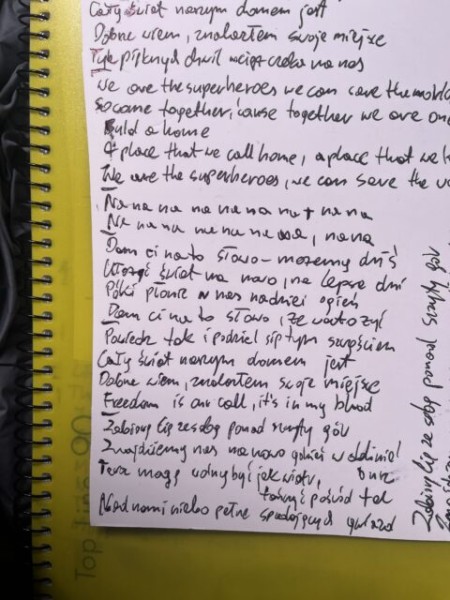 Cały świat naszym domem jest
Dobrze wiem, znalazłem swoje miejsce
Tyle pięknych chwil wciąż czeka na nas
We are the superheroes we can save the world
So come together, 'cause together we are one
Build a home
A place that we call home, a place that we
We are the superheroes, we can save the
Na na na na na na na na na
Na na na na na na na, na na
Dam ci na to słowo - możemy dziś
Ułożyć świat na nowo, na lepsze dni
Póki płonie w nas nadziei ogień
Dam ci na to słowo, że warto żyć
Powiedz tak i podziel się tym szczęściem
Cały świat naszym domem jest
Dobrze wiem, znalazłem swoje miejsce
Freedom is our call, it's in my blood
Zabiorę Cię ze sobą ponad szczyty gór
Znajdziemy nas na nowo gdzieś w oddali
Teraz mogę wolny być jak wiatr, burz
tańczyć pośród fal
Nad nami niebo pełne spadających gwiazd
Zabiorę Cię ze sobą ponad szczyty gór